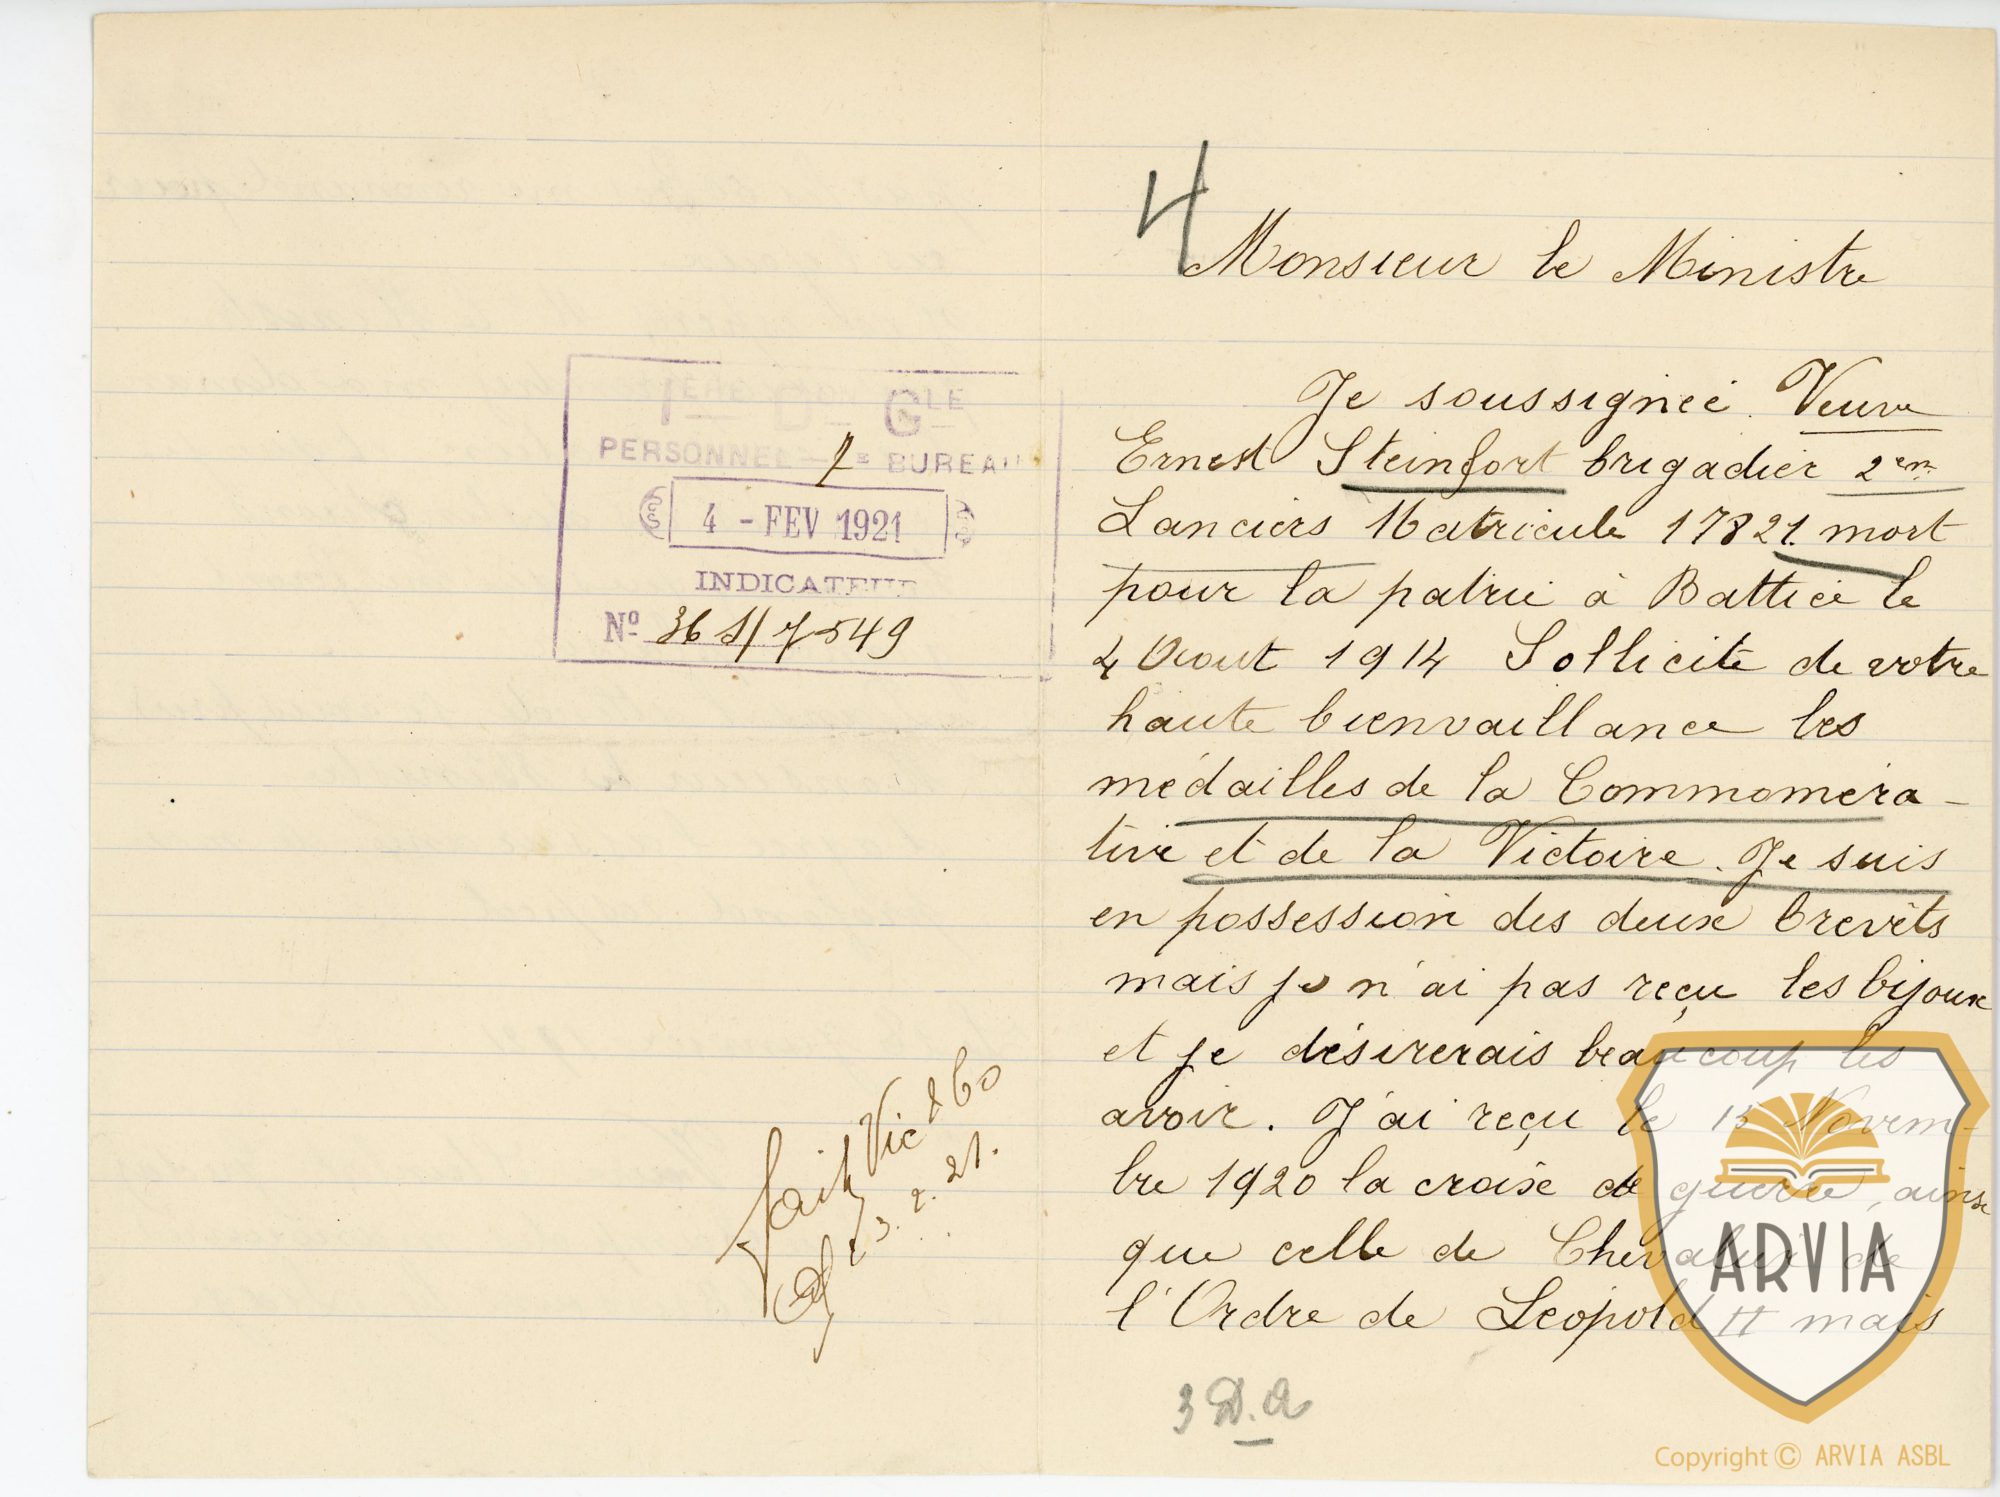 1ÈRE Don GLE
PERSONNEL — 7E BUREAU
4 - FEV 1921
INDICATEUR
No 36 S/7549
fait Vic & Co
23.2.21.
4
Monsieur le Ministre
Je soussignée. Veuve
Ernest Steinfort brigadier 2em
Lanciers Matricule 17821. mort
pour la patrie à Battice le
4 Aout 1914 Sollicite de votre
haute bienvaillance les
médailles de la Commoméra-
tive et de la Victoire. Je suis
en possession des deux brevets
mais je n'ai pas reçu les bijoux
et je désirerais beaucoup les
avoir. J'ai reçu le 15 Novem-
bre 1920 la croix de guerre, ainsi
que celle de Chevalier de
l'Ordre de Leopold II mais
3 D.A
ARVIA
Copyright © ARVIA ASBL